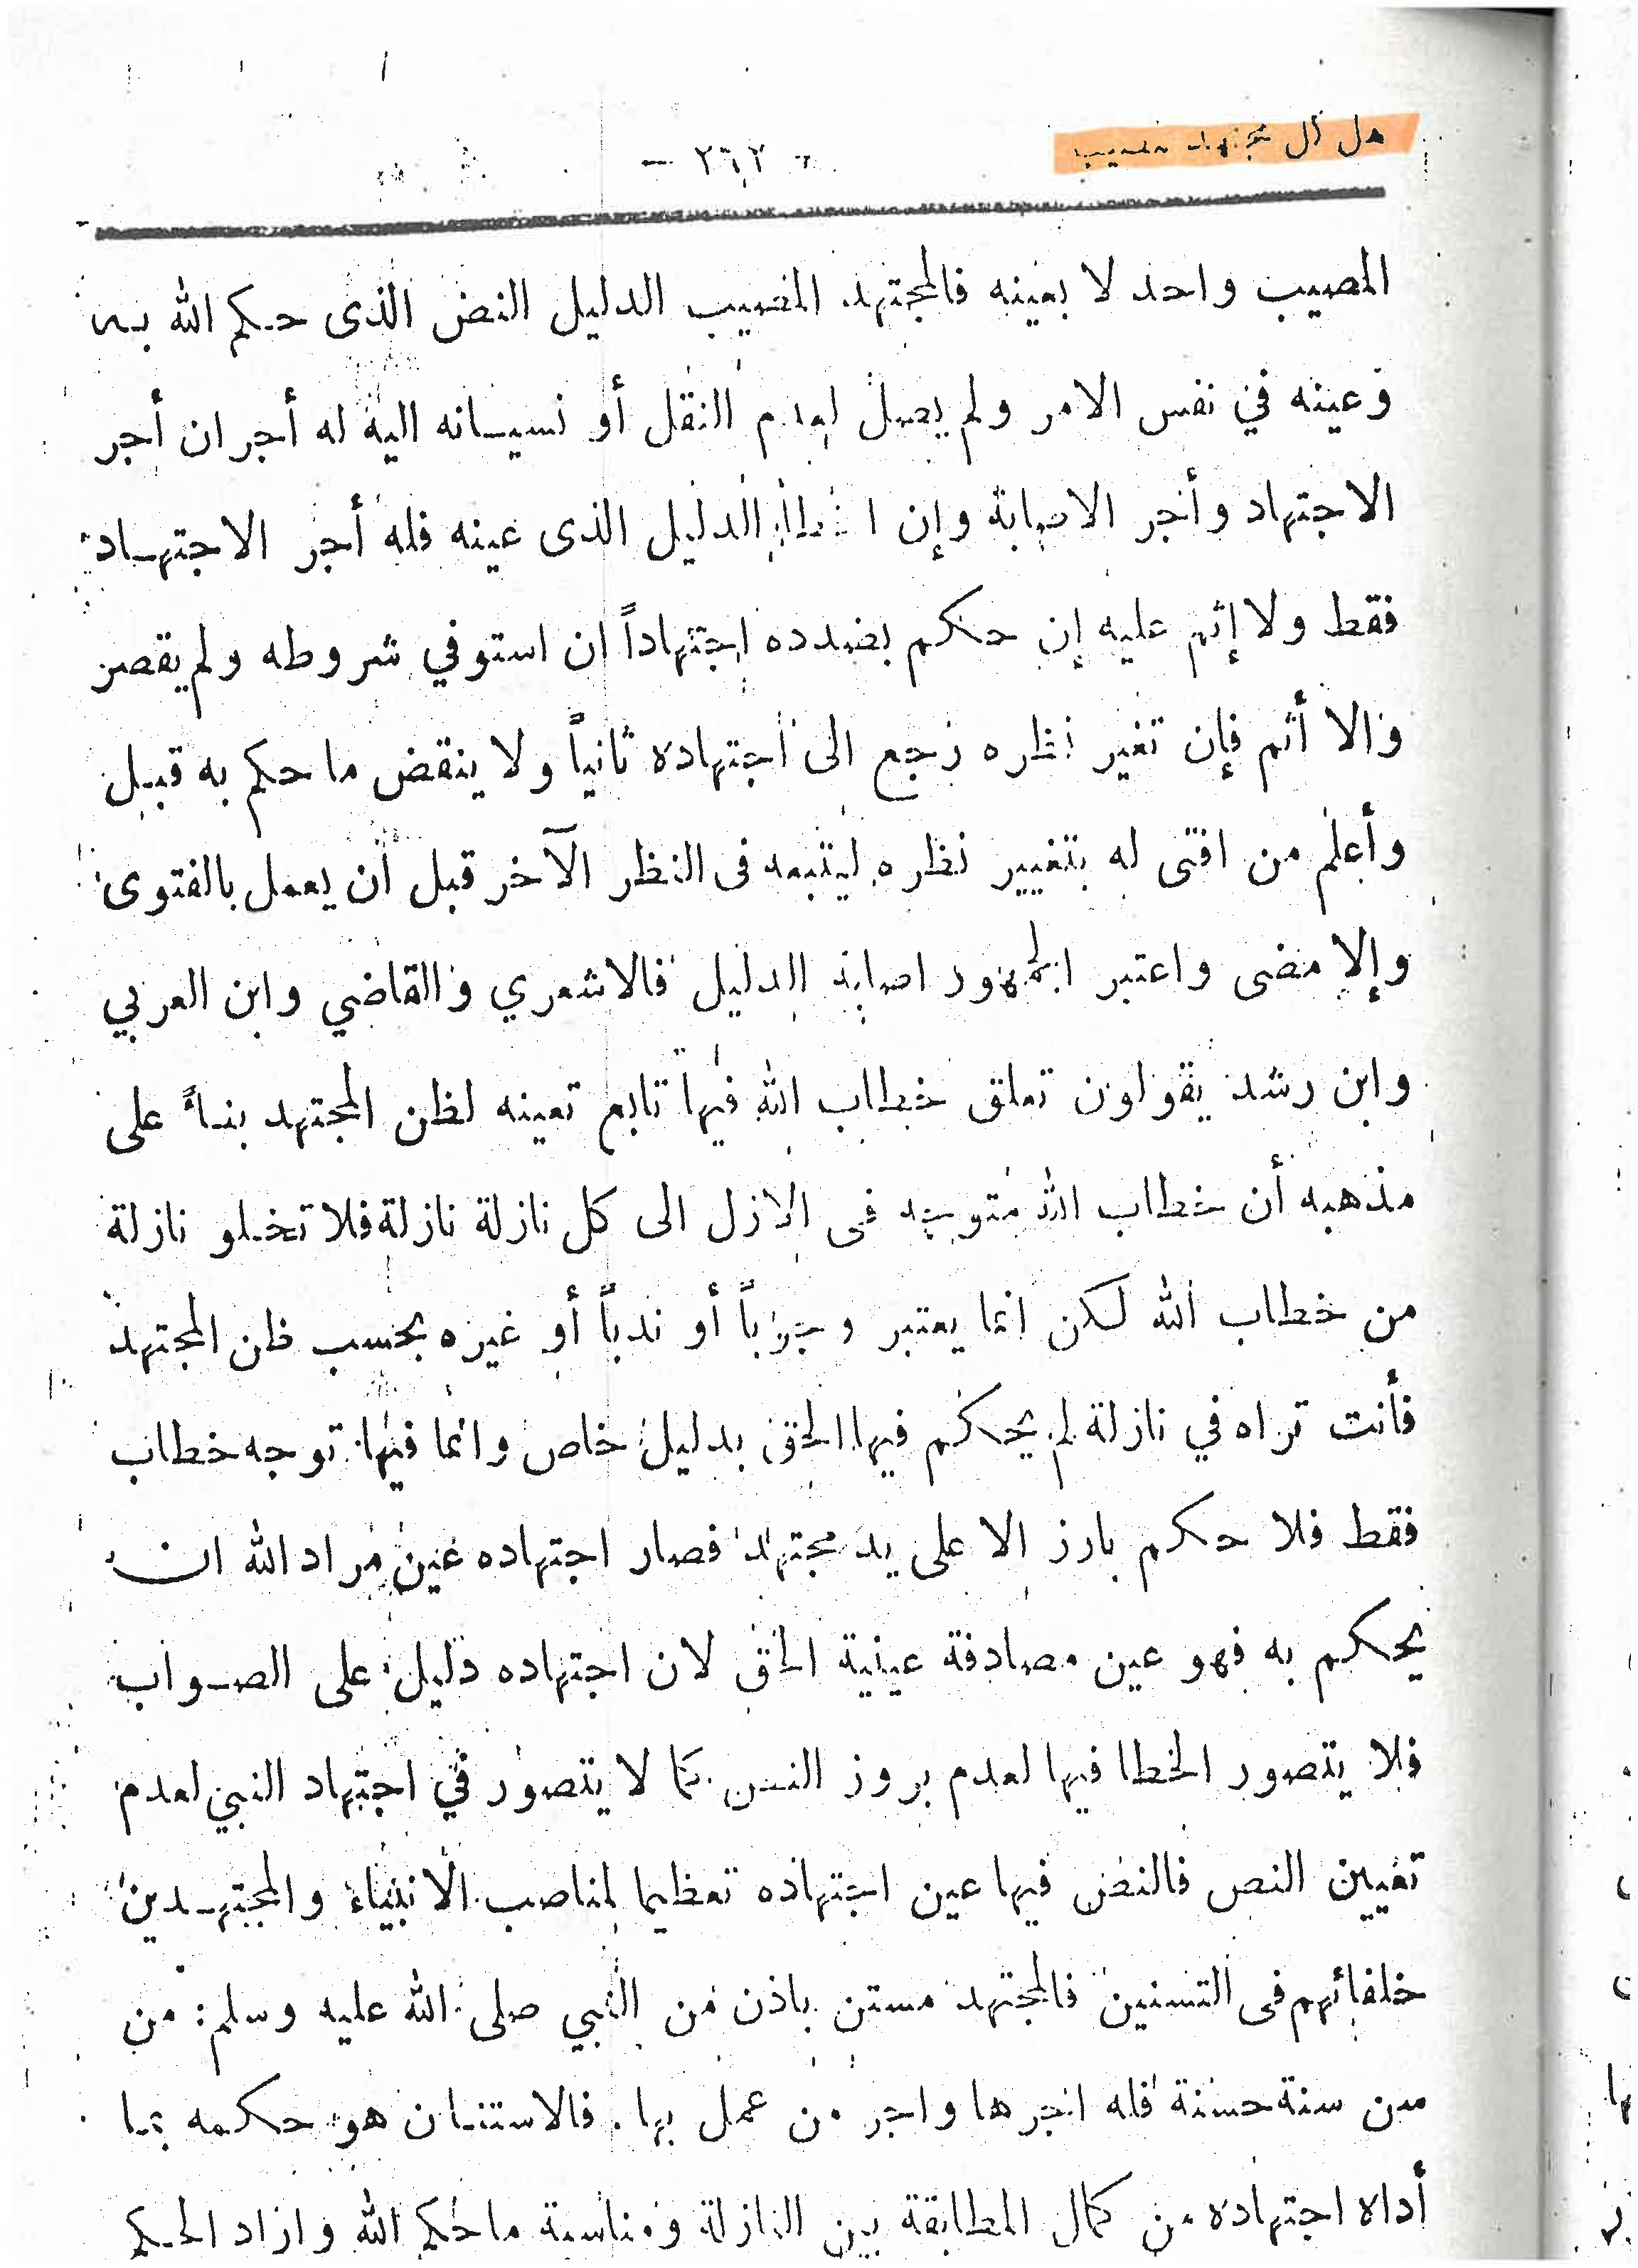 هل كل مجتهد مصيب
- ٢٦٢ -
المصيب واحد لا بعينه فالمجتهد المصيب الدليل النص الذى حكم الله به
وعينه في نفس الامر ولم يصل لعدم النقل أو نسيانه اليه له أجران أجر
الاجتهاد وأجر الاصابة وإن اخطأ الدليل الذى عينه فله أجر الاجتهاد
فقط ولا إثم عليه إن حكم بضدده اجتهاداً ان استوفي شروطه ولم يقصر
والا أثم فإن تغير نظره رجع الى اجتهاده ثانياً ولا ينقض ما حكم به قبل
وأعلم من افتى له بتغيير نظره ليتبعه فى النظر الآخر قبل أن يعمل بالفتوى
وإلا مضى واعتبر الجمهور اصابة الدليل فالاشعري والقاضي وابن العربي
وابن رشد يقولون تعلق خطاب الله فيها تابع تعينه لظن المجتهد بناءً على
مذهبه أن خطاب الله متوجه فى الازل الى كل نازلة نازلة فلا تخلو نازلة
من خطاب الله لكن انما يعتبر وجوباً أو ندباً أو غيره بحسب ظن المجتهد
فأنت تراه في نازلة لم يحكم فيها الحق بدليل خاص وانما فيها توجه خطاب
فقط فلا حكم بارز الا على يد مجتهد فصار اجتهاده عين مراد الله ان
يحكم به فهو عين مصادفة عينية الحق لان اجتهاده دليل على الصواب
فلا يتصور الخطا فيها لعدم بروز النص كما لا يتصور في اجتهاد النبي لعدم
تعيين النص فالنص فيها عين اجتهاده تعظيما لمناصب الانبياء والمجتهدين
خلفائهم فى التسنين فالمجتهد مستن باذن من النبي صلى الله عليه وسلم: من
سن سنة حسنة فله اجرها واجر من عمل بها. فالاستنان هو حكمه بما
أداه اجتهاده من كمال المطابقة بين النازلة ومناسبة ما حكم الله واراد الحكم